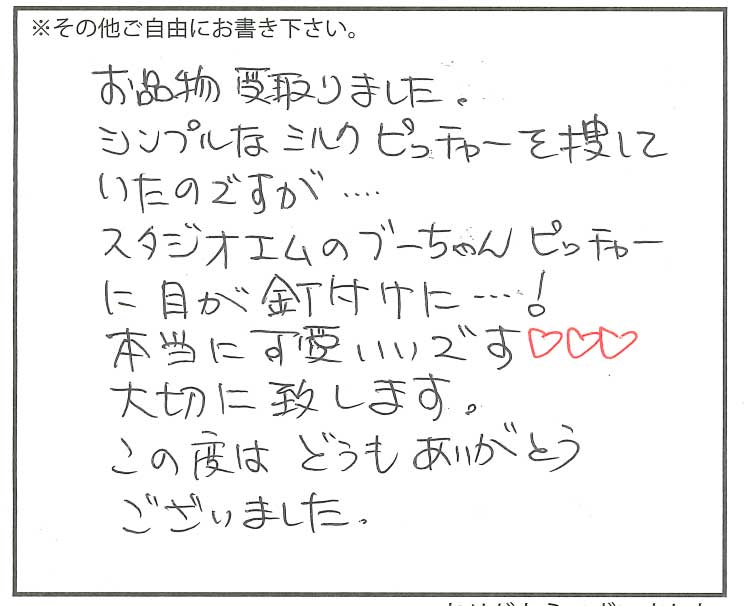 ※その他ご自由にお書き下さい。
お品物受取りました。
シンプルなミルクピッチャーを捜して
いたのですが‥‥
スタジオエムのブーちゃんピッチャー
に目が釘付けに…!
本当に可愛いいです♡♡♡
大切に致します。
この度はどうもありがとう
ございました。